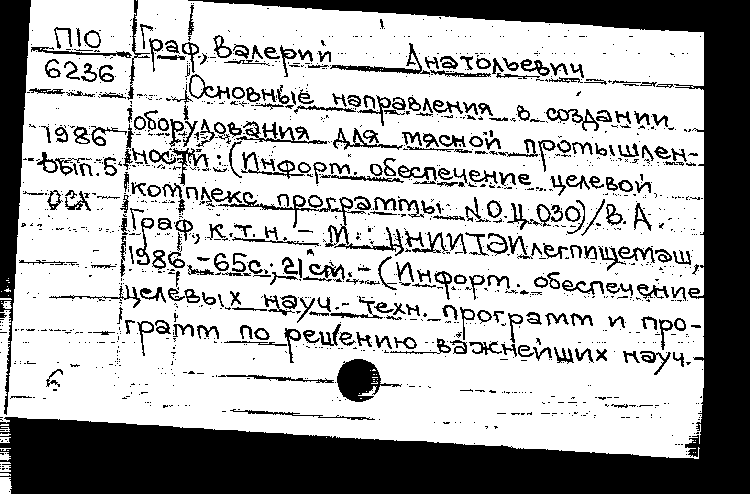 П10
6236
1986
вып.5
ОСХ
Граф, Валерий Анатольевич
Основные направления в создании
оборудования для мясной промышлен-
ности: (Информ. обеспечение целевой
комплекс программы 0.Ц.030)/В.А.
Граф, к.т.н. - М.: ЦНИИТЭИлегпищемаш,
1986.-65с.; 21см. - (Информ. обеспечение
целевых науч.- техн. программ и про-
грамм по решению важнейших науч.-
6